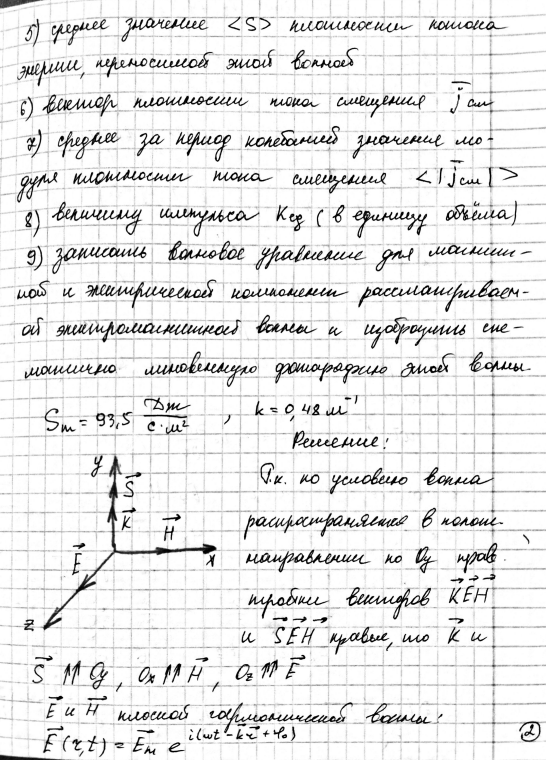 5) среднее значение <S> плотности потока
энергии, переносимой этой волной
6) вектор плотности тока смещения j⃗см
7) среднее за период колебаний значение мо-
дуля плотности тока смещения <|j⃗см|>
8) величину импульса Kед (в единицу объёма)
9) записать волновое уравнение для магнит-
ной и электрической компонент рассматриваем-
ой электромагнитной волны и изобразить схе-
матично мгновенную фотографию этой волны
Sm = 93,5 Дж/(с·м²) , k = 0,48 м⁻¹
Решение:
Т.к. по условию волна
распространяется в полож.
направлении по Oy прав
тройки векторов K⃗E⃗H⃗
и S⃗E⃗H⃗ правые, то K⃗ и
y
S⃗
K⃗
H⃗
x
E⃗
z
S⃗ ⇈ Oy, Ox ⇈ H⃗, Oz ⇈ E⃗
E⃗ и H⃗ плоской гармонической волны:
E⃗(r,t) = E⃗m e^i(ωt - k⃗r⃗ + φ₀)
2